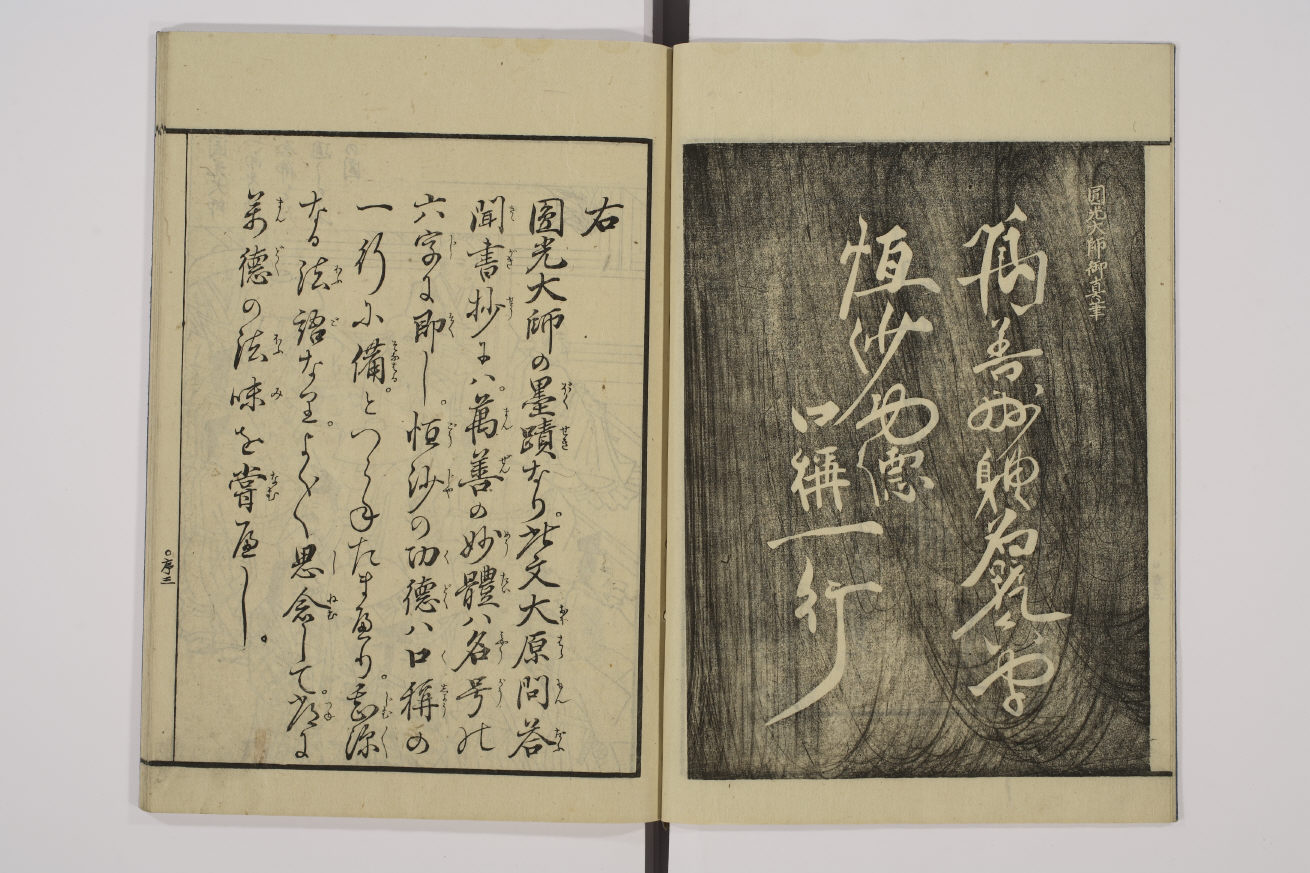 圓光大師御真筆
萬善妙躰名號六字
恒沙功德
口稱一行
右
圓光大師の墨蹟なり。此文大原問荅
聞書抄にハ。萬善の妙體ハ名号の
六字に即し。恒沙の功德ハ口稱の
一行に備。とつらねたまへり。甚深
なる法語なり。よく〱思念して。常に
萬德の法味を嘗へし。
○序三